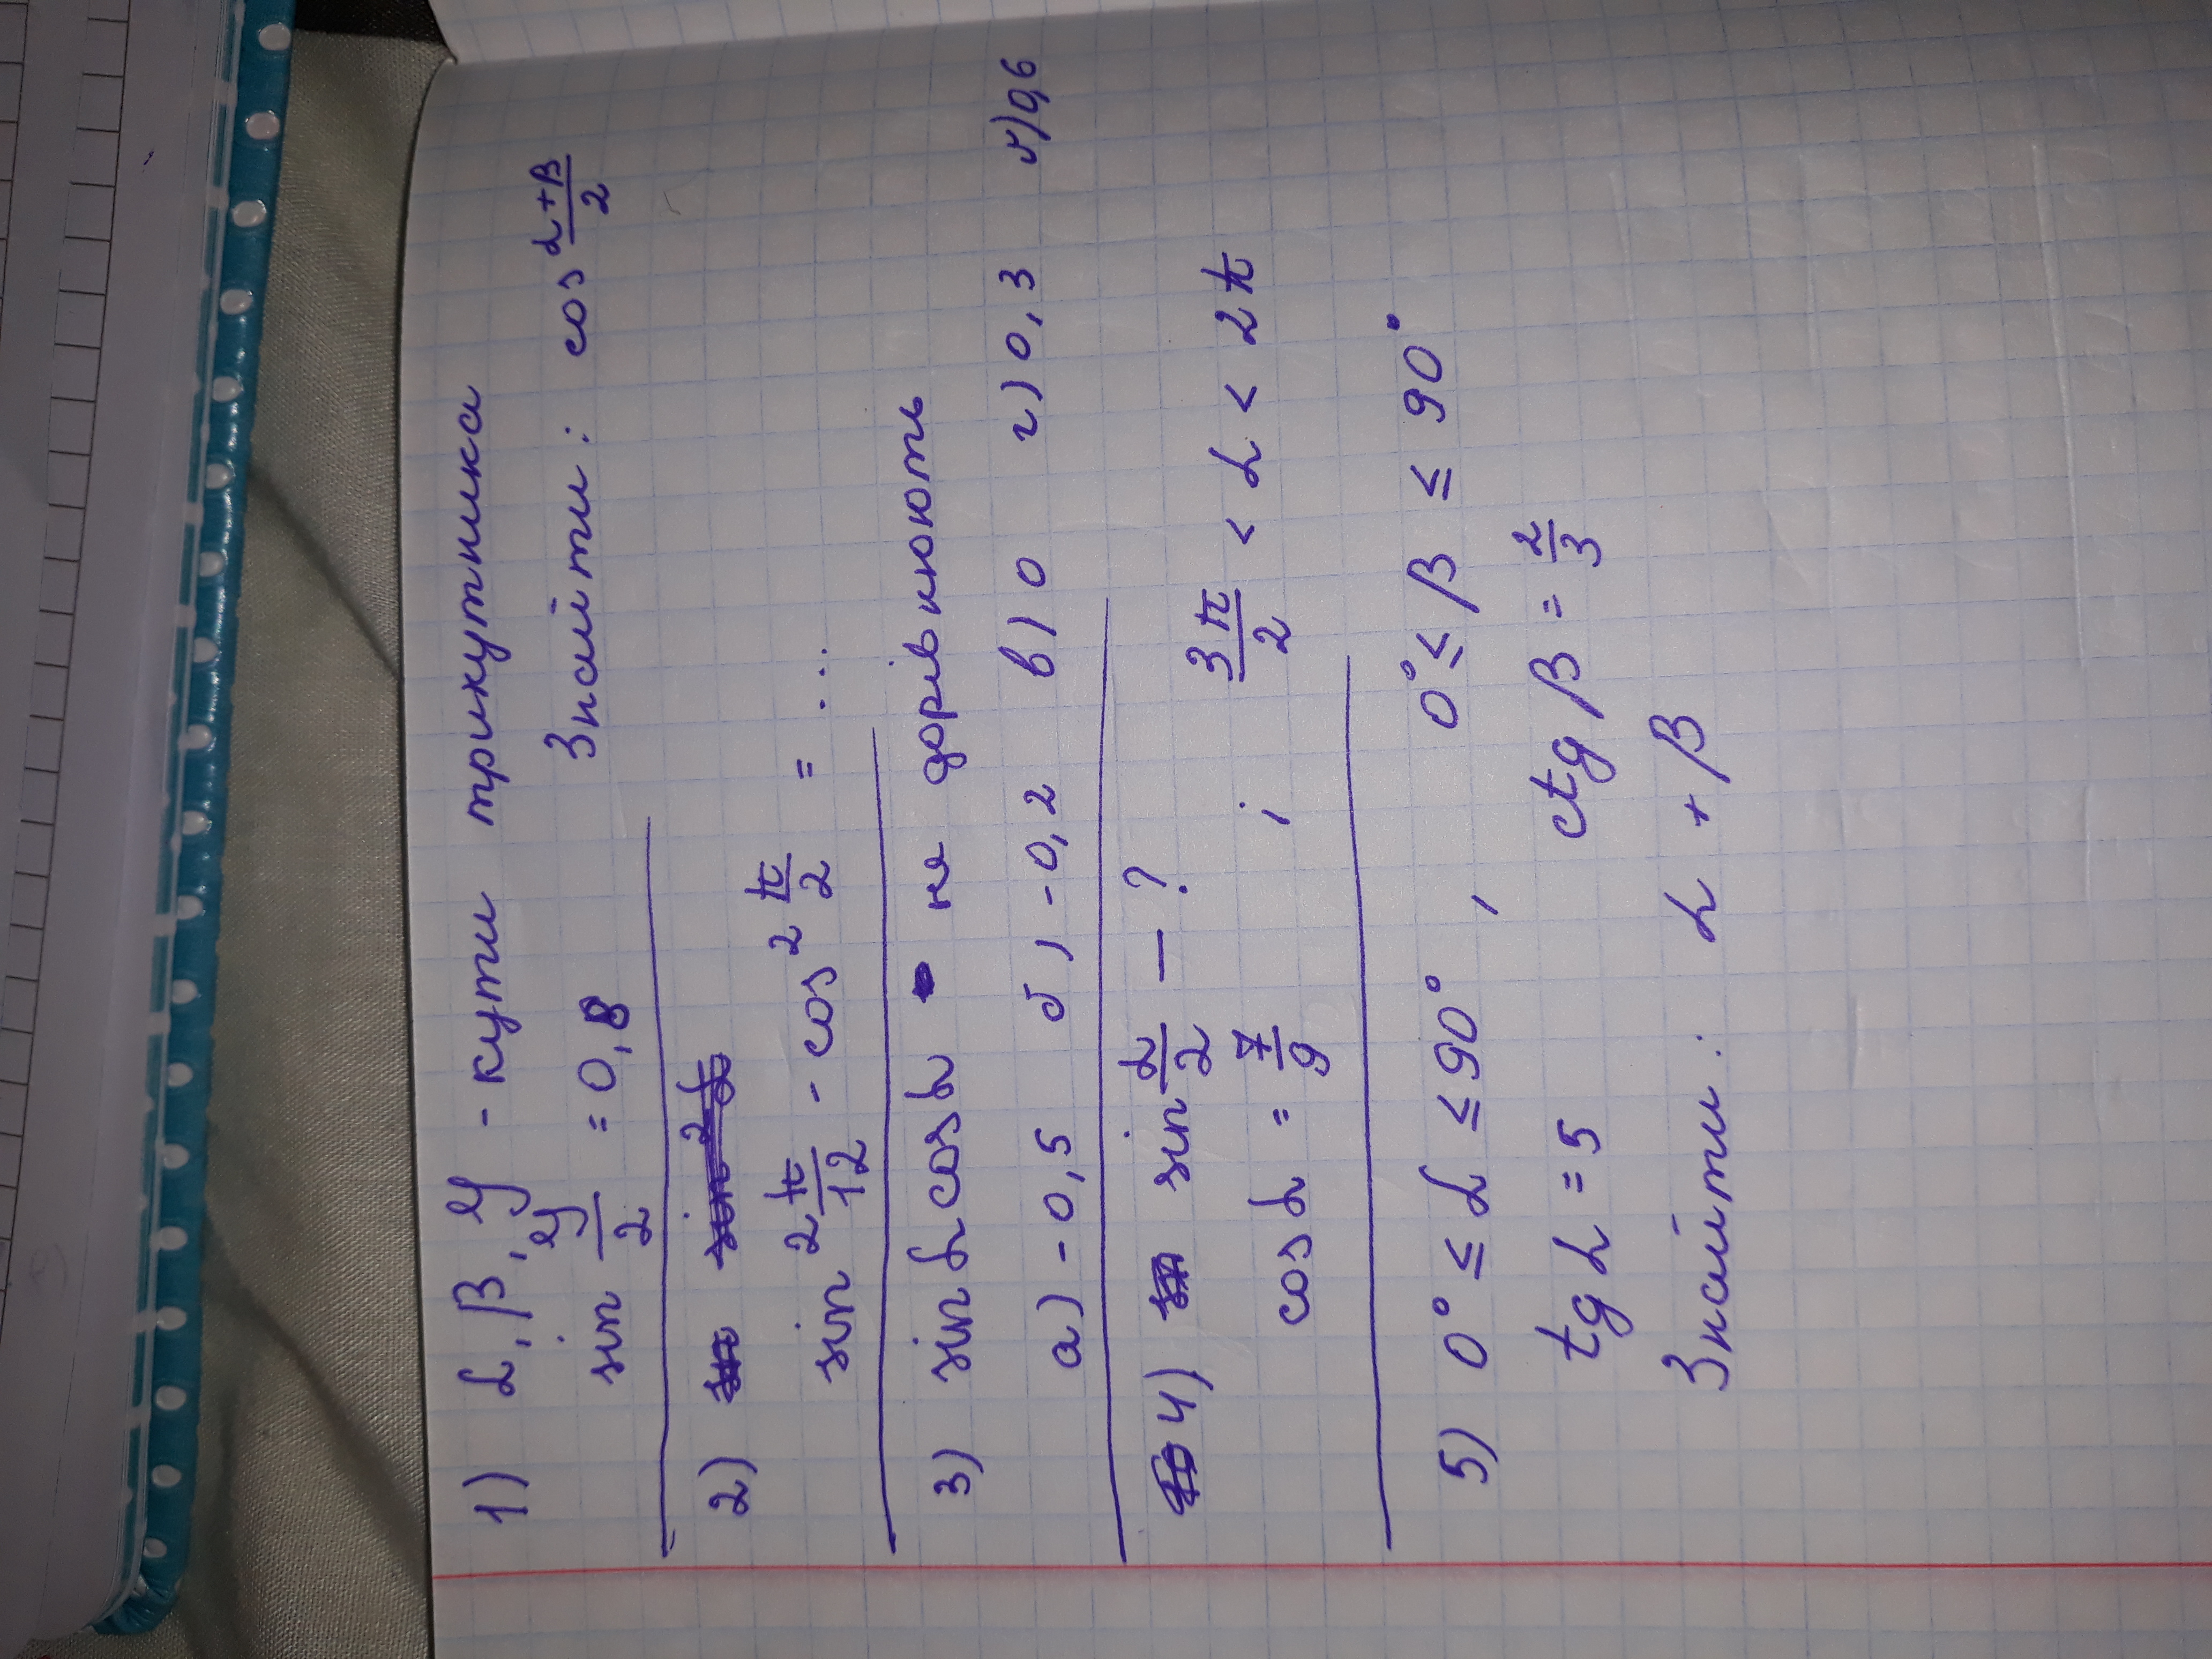 1) α, β, γ - кути трикутника
sin γ/2 = 0,8 Знайти: cos (α+β)/2
2) sin² π/12 - cos² π/2 = ...
3) sin α cos α не дорівнюють
а) -0,5 б) -0,2 в) 0 г) 0,3 д) 0,6
4) sin α/2 — ?
cos α = 7/9 ; 3π/2 < α < 2π
5) 0° ≤ α ≤ 90° , 0° ≤ β ≤ 90°
tg α = 5 ctg β = 2/3
Знайти: α + β